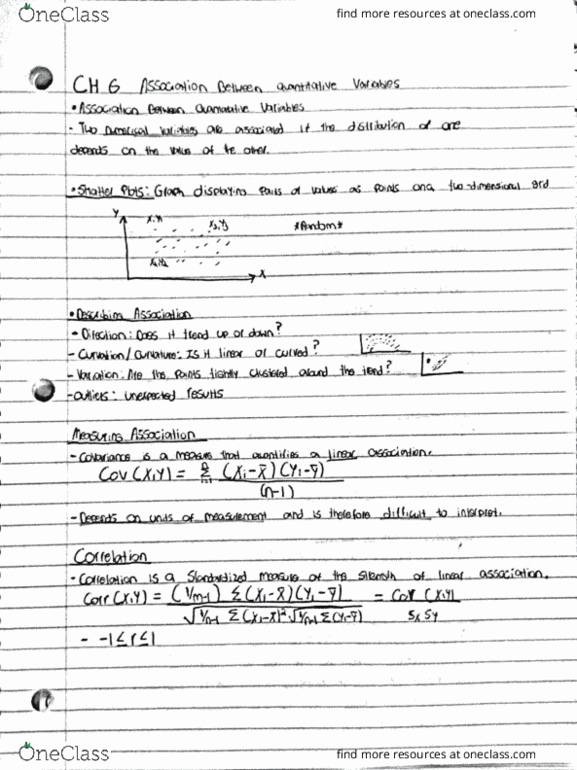 OneClass
find more resources at oneclass.com
CH 6 Association Between Quantitative Variables
• Association Between Quantitative Variables
- Two numerical variables are associated if the distribution of one
depends on the value of the other.
• Shatter Plots: Graph displaying Pairs of values as points on a two-dimensional grid
Y
X
• Describing Association
- Direction: Does it trend up or down?
- Curvation / Curvature: Is it linear or curved?
- Variation: Are the Points tightly clustered around the trend?
- outliers: unexpected results
Measuring Association
- Covariance is a measure that quantifies a linear association.
Cov (X,Y) = Σ (Xi-x̄)(Yi-ȳ)
(n-1)
- Depends on units of measurement and is therefore difficult to interpret.
Correlation
- Correlation is a Standardized measure of the strength of linear association.
Corr (X,Y) = (1/n-1) Σ(Xi-x̄)(Yi-ȳ) = Cov (X,Y)
√1/n-1 Σ(Xi-x̄)² √1/n-1 Σ(Yi-ȳ) Sx Sy
- -1≤r≤1
OneClass
find more resources at oneclass.com